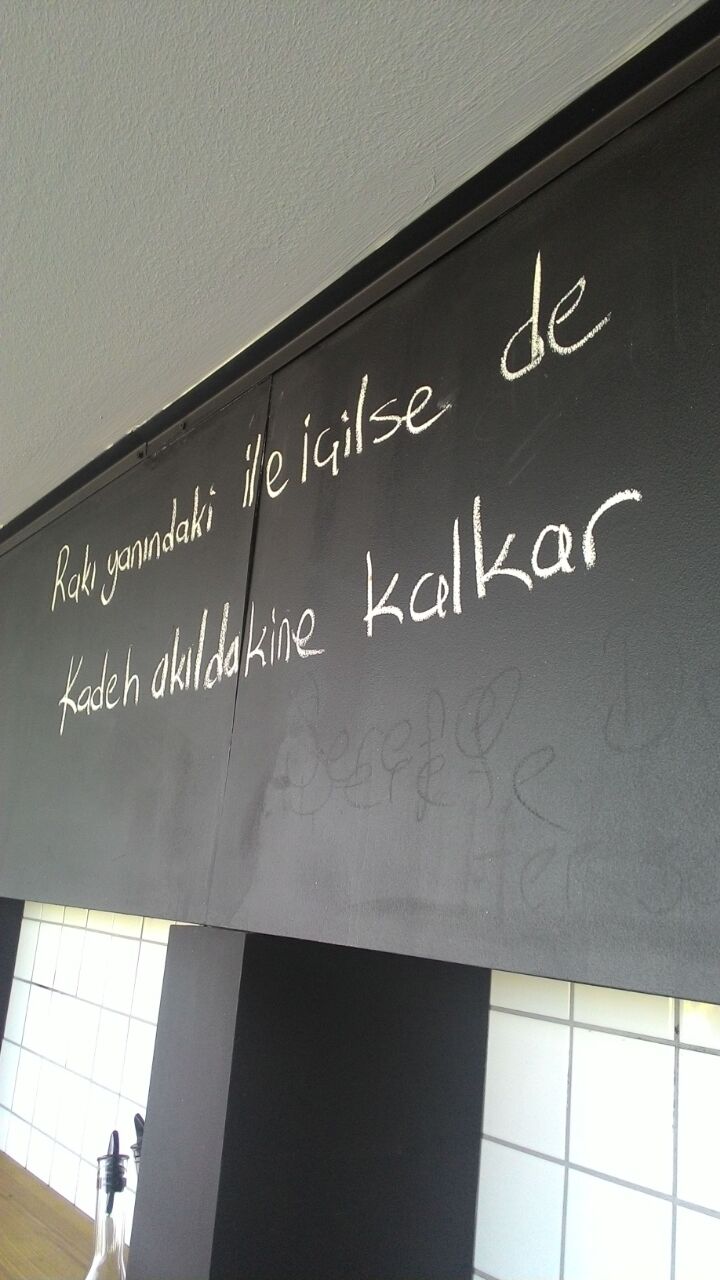 Rakı yanındaki ile içilse de
Kadeh akıldakine kalkar